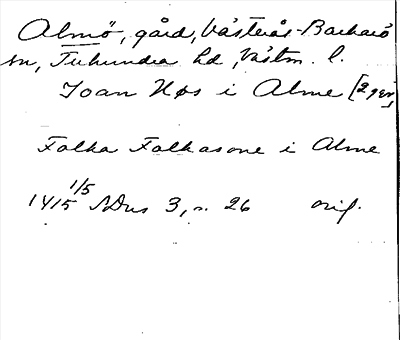 Almö, gård, Västerås-Barkarö
sn, Tuhundra hd, Västm. l.
Joan Uss i Alme [2 ggr]
Falka Falkasone i Alme
1415 1/5 SDns 3, s. 26 orig.